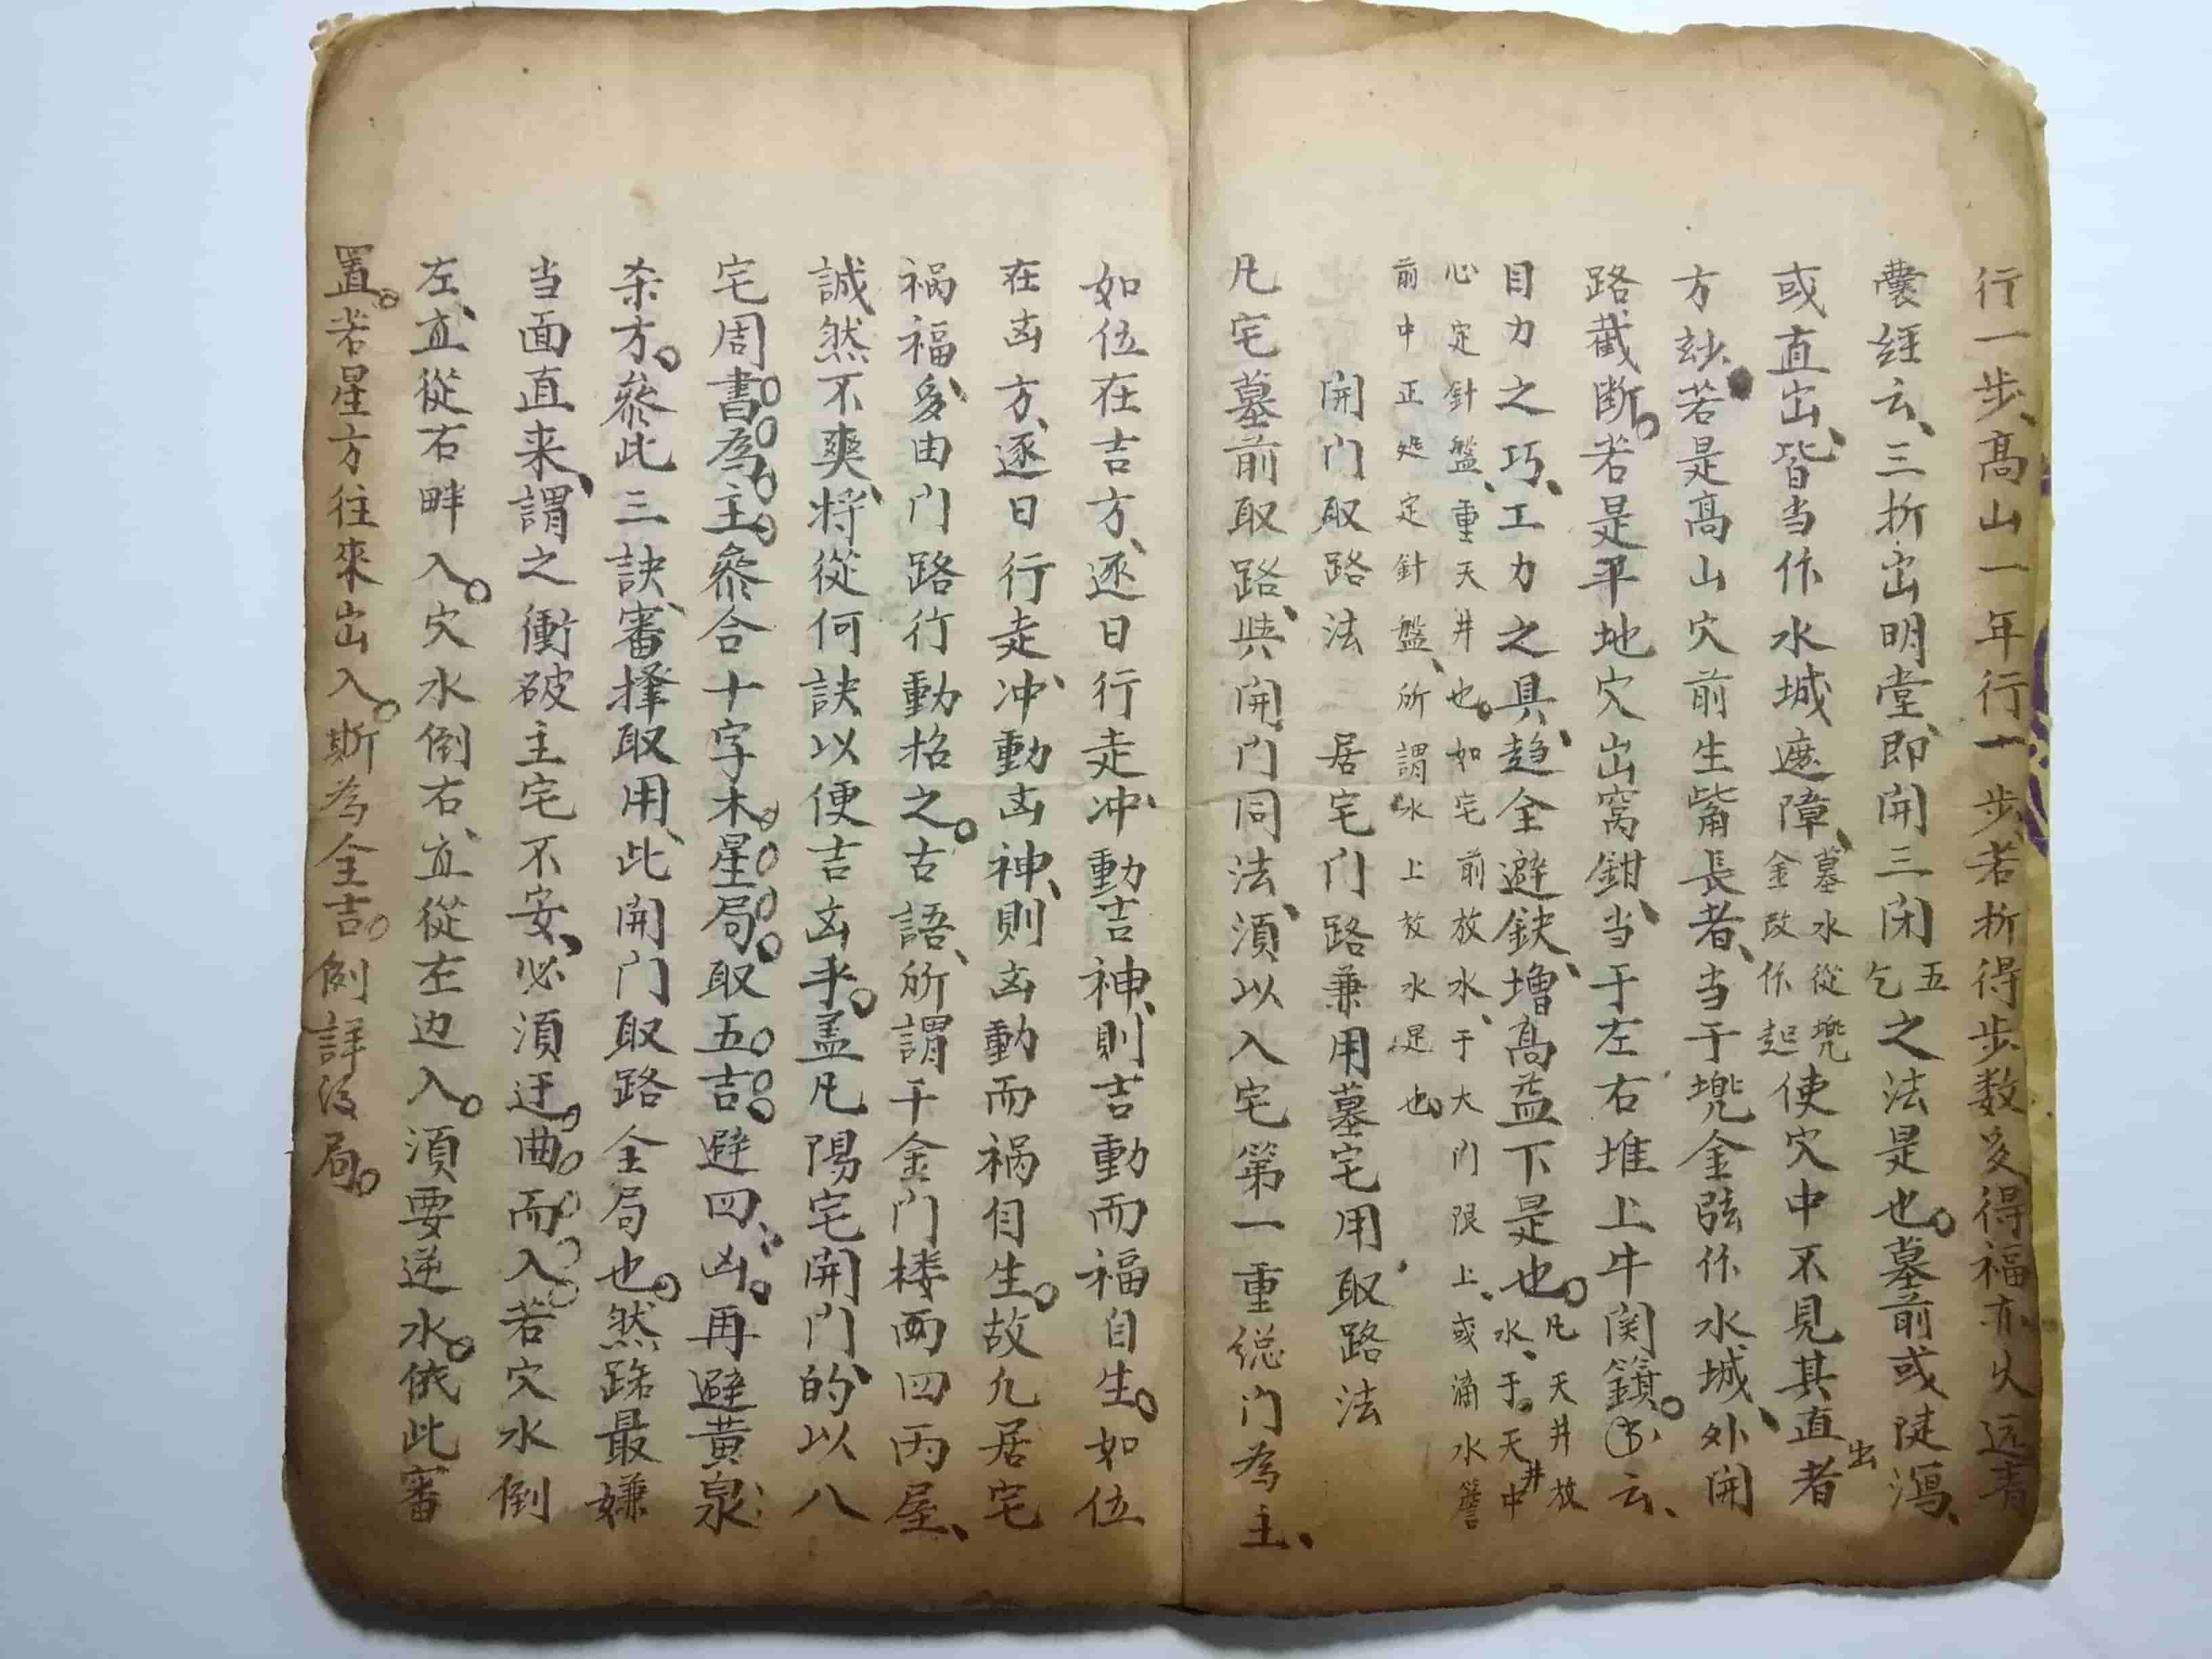 行一步、高山一年行一步、若折得步数多得福亦久远青
囊経云、三折出明堂、即開三闭五乞之法是也。墓前或陡瀉、
或直出、皆当作水城遮障、墓水從兜金改作起使穴中不見其直出者
方玅、若是高山穴前生嘴長者、当于兜金弦作水城、外開
路、截断。若是平地穴出窩鉗、当于左右堆上牛関鎖。云、
目力之巧、工力之具、趋全避鈌、增高益下是也。凡天井放水、于天井中
心定針盤、重天井也。如宅前放水、于大门限上、或滴水簷
前中正処定針盤、所謂水上放水是也。
開门取路法 居宅门路兼用墓宅用取路法
凡宅墓前取路、與開门同法、須以入宅第一重総门為主、
如位在吉方、逐日行走、冲動吉神、則吉動而福自生。如位
在凶方、逐日行走、冲動凶神、則凶動而祸自生。故凡居宅
祸福、多由门路行動招之。古語、所謂千金门楼両四丙屋、
誠然不爽、将從何訣以便吉凶乎。盖凡陽宅開门的、以八
宅周書為主、叅合十字木星局、取五吉。避四凶。再避黄泉
杀方。叅此三訣、審擇取用、此開门取路全局也。然路最嫌
当面直来、謂之衝破主宅不安、必須迂曲而入、若穴水倒
左、宜從右畔入。穴水倒右、宜從左边入。須要逆水。依此審
置。若星方往來出入。斯為全吉。例詳後局。